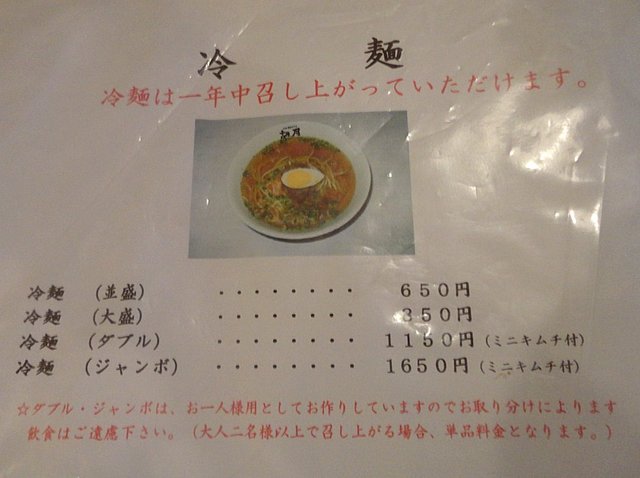 冷 麺
冷麺は一年中召し上がっていただけます。
冷麺 (並盛) ・・・・・・・・ 650円
冷麺 (大盛) ・・・・・・・・ 350円
冷麺 (ダブル) ・・・・・・・・ 1150円 (ミニキムチ付)
冷麺 (ジャンボ) ・・・・・・・・ 1650円 (ミニキムチ付)
☆ダブル・ジャンボは、お一人様用としてお作りしていますのでお取り分けによります
飲食はご遠慮下さい。(大人二名様以上で召し上がる場合、単品料金となります。)